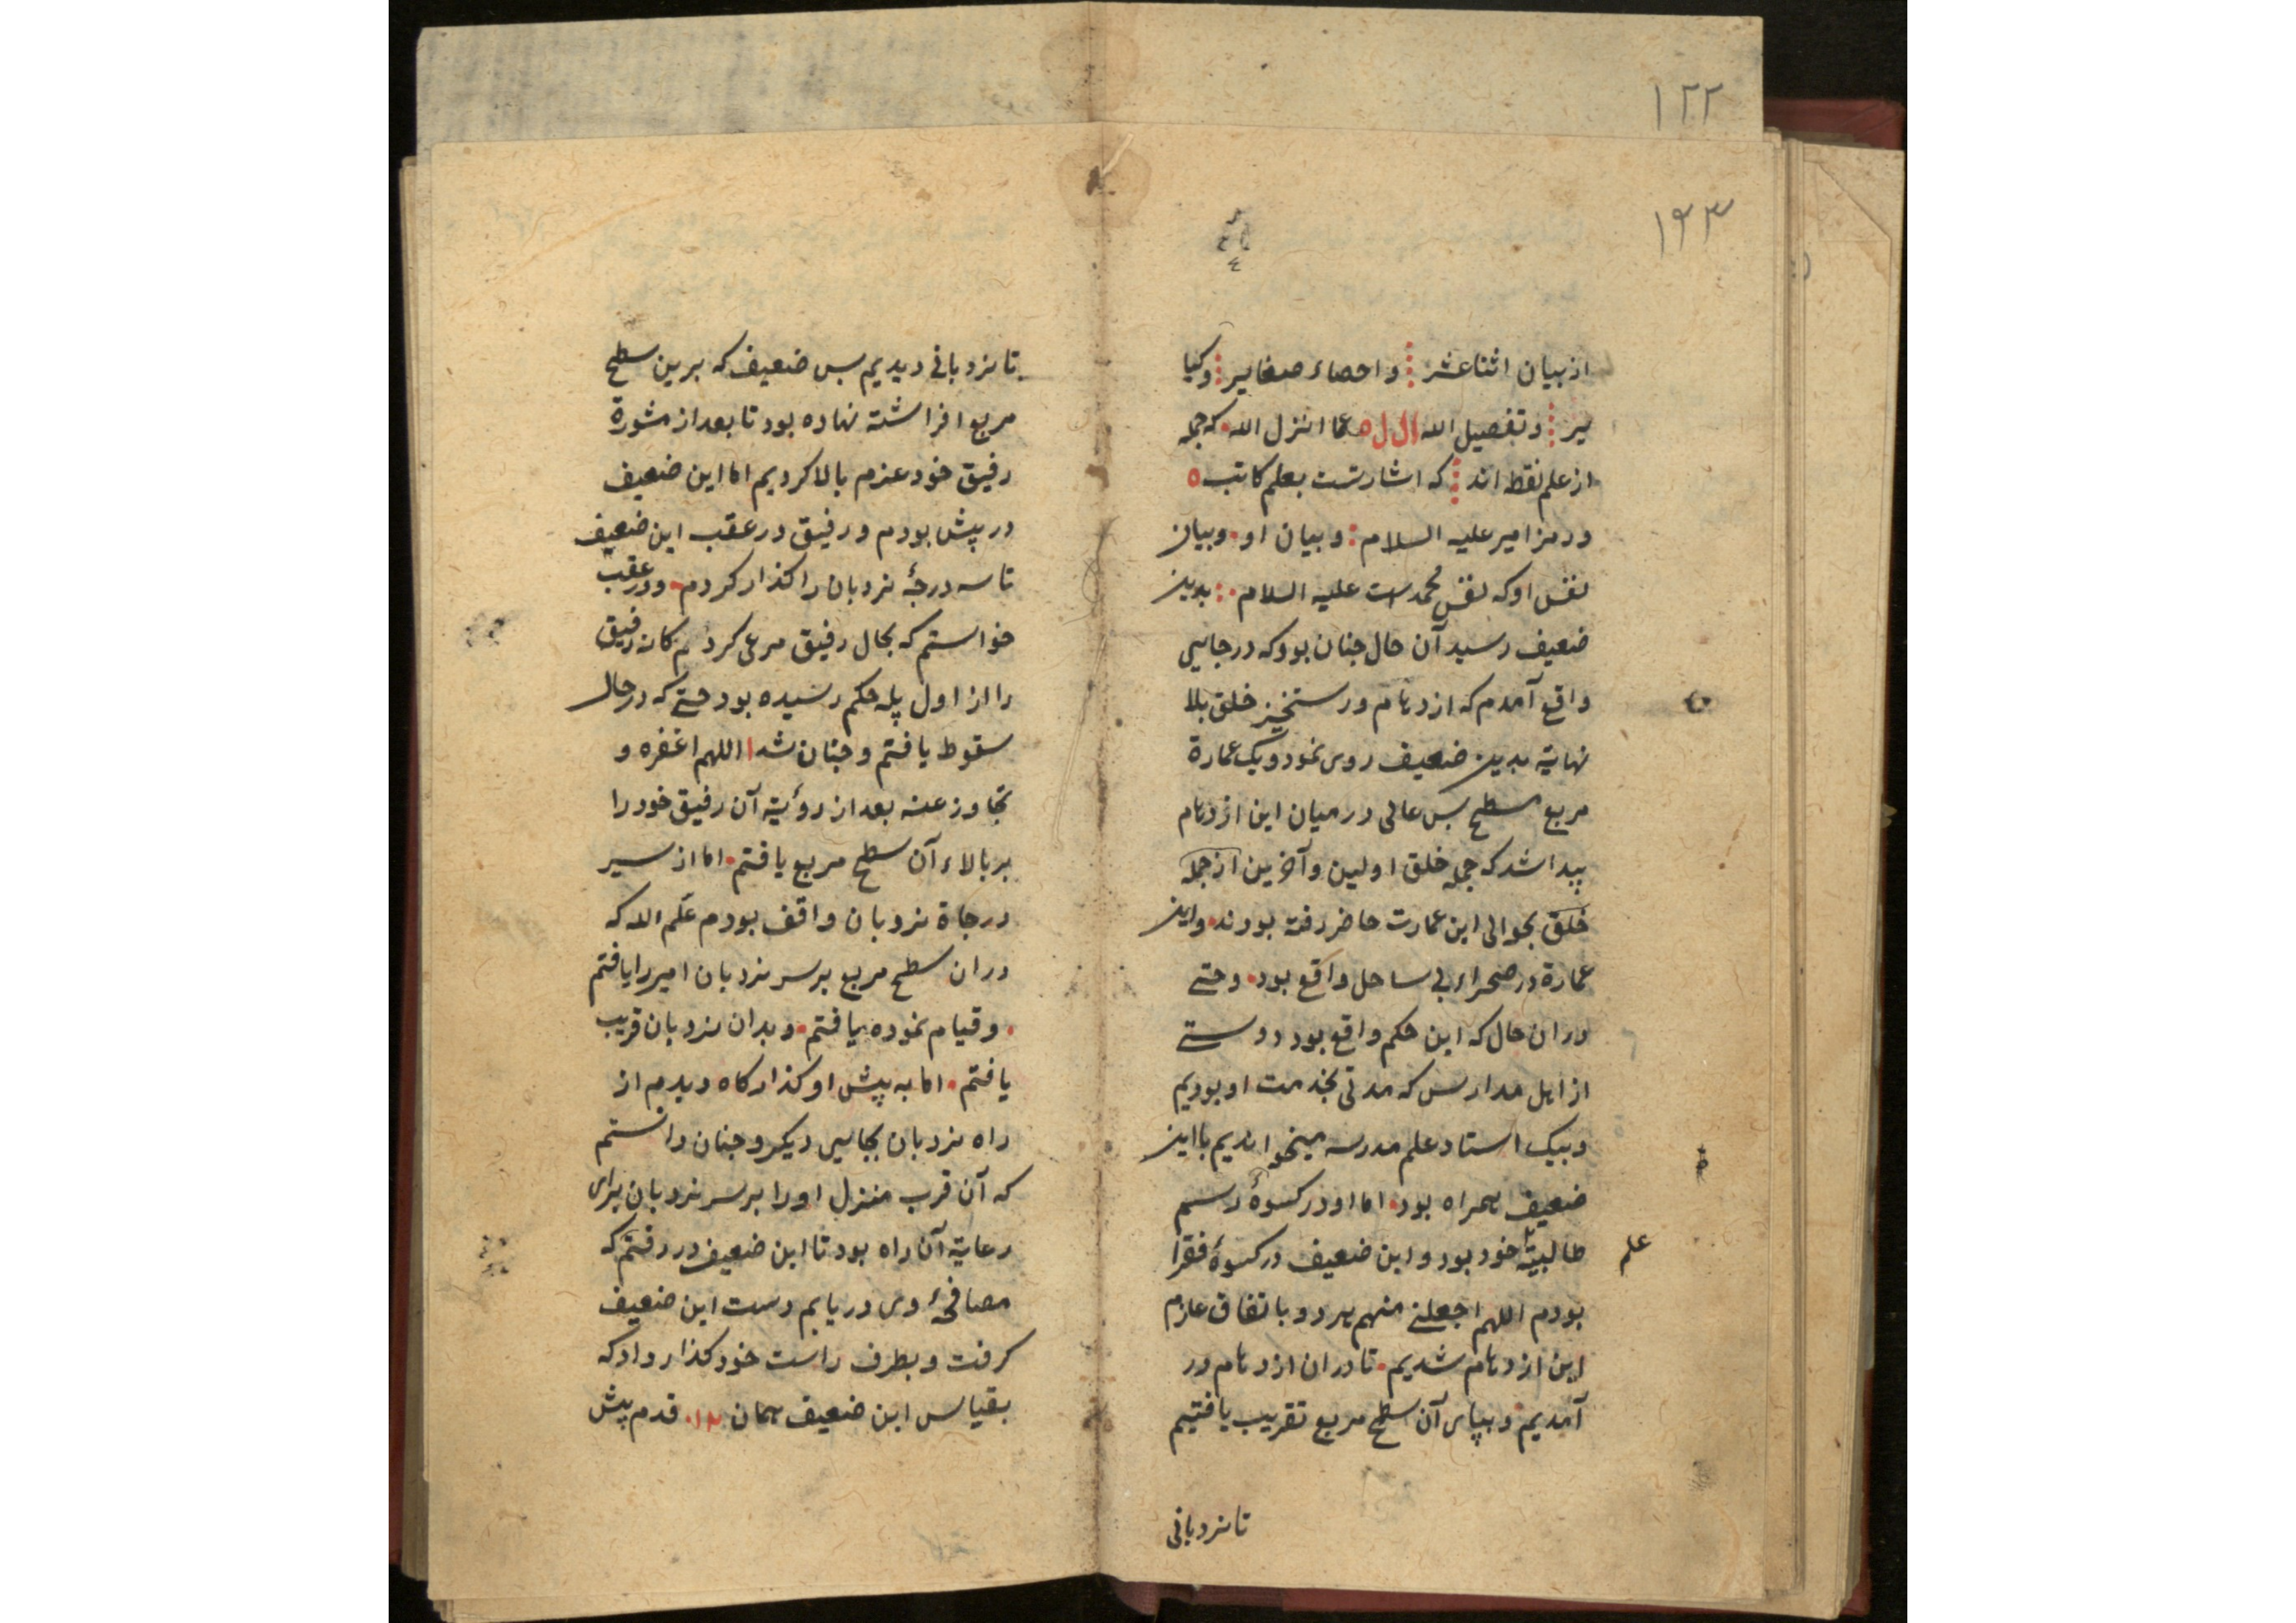 ۱۲۲
۱۲۳
از بیان اثنا عشر و احصاء صغایر و کبا
یر و تفصیل الله ال ل ه عما انزل الله که جمله
از علم نقط اند که اشارتست بعلم کاتب ه
و رمز امیر علیه السلام و بیان او و بیان
نفس او که نفس محمد است علیه السلام بدین
ضعیف رسید آن حال جنان بود که در جایی
واقع آمدم که ازدهام و رستخیز خلق بلا
نهایة بدین ضعیف روی نمود و یک عمارة
مربع مسطح بس عالی در میان این ازدهام
پیدا شد که جمله خلق اولین و آخرین از جمله
خلق بحوالی این عمارت حاضر رفته بودند و این
عمارة در صحراء بی ساحل واقع بود و حتی
دران حال که این حکم واقع بود دوستی
از اهل مدارس که مدتی بخدمت او بودیم
و بیک استاد علم مدرسه میخواندیم با این
ضعیف همراه بود اما او در کسوة رسم
طالبیة خود بود و این ضعیف در کسوة فقرا
علم
بودم اللهم اجعلنی منهم هر دو باتفاق عازم
این ازدهام شدیم تا دران ازدهام در
آمدیم و بپای آن سطح مربع تقریب یافتیم
تا نردبانی
تا نردبانی دیدیم بس ضعیف که برین سطح
مربع افراشته نهاده بود تا بعد از مشورة
رفیق خود عزم بالا کردیم اما این ضعیف
در پیش بودم و رفیق در عقب این ضعیف
تا سه درجهٔ نردبان را کذار کردم و در عقب
خواستم که بحال رفیق مرعی کردم که آن رفیق
را از اول پله حکم رسیده بود حتی که در حال
سقوط یافتم و جنان شد ا اللهم اغفره و
تجاوز عنه بعد از رؤیة آن رفیق خود را
بر بالاء آن سطح مربع یافتم اما از سیر
درجاة نردبان واقف بودم علم الله که
دران سطح مربع بر سر نردبان امیر را یافتم
و قیام نموده یافتم و بدان نردبان قریب
یافتم اما به پیش او کذارکاه دیدم از
راه نردبان بجایی دیکر و جنان دانستم
که آن قرب منزل او را بر سر نردبان برای
رعایة آن راه بود تا این ضعیف در رفتم که
مصافحهٔ وی دریابم دست این ضعیف
کرفت و بطرف راست خود کذار داد که
بقیاس این ضعیف همان ۱۲ قدم پیش